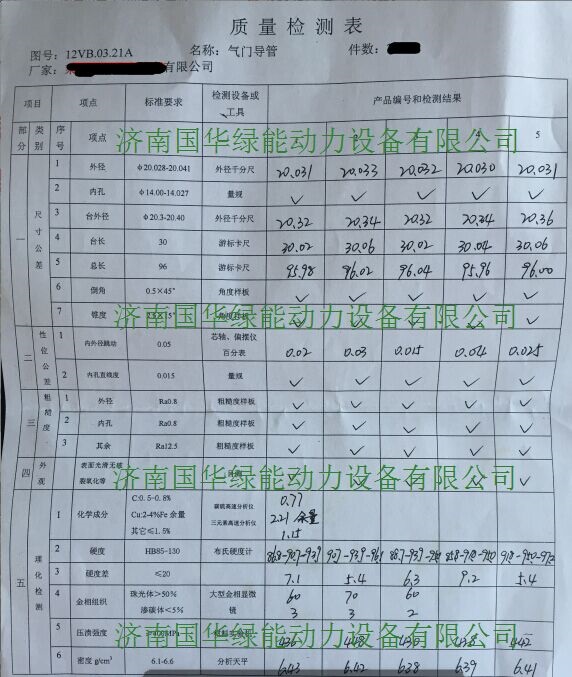 质量检测表
图号：12VB.03.21A 名称：气门导管 件数：
厂家： 有限公司
项目 项点 标准要求 检测设备或工具 产品编号和检测结果
部分 类别 序号 项点 4 5
济南国华绿能动力设备有限公司
一 尺寸公差
1 外径 φ20.028-20.041 外径千分尺 20.031 20.033 20.032 20.030 20.031
2 内孔 φ14.00-14.027 量规 ✓ ✓ ✓ ✓ ✓
3 台外径 φ20.3-20.40 外径千分尺 20.32 20.34 20.32 20.34 20.36
4 台长 30 游标卡尺 30.02 30.06 30.02 30.04 30.06
5 总长 96 游标卡尺 95.98 96.02 96.04 95.96 96.00
6 倒角 0.5×45° 角度样板 ✓ ✓ ✓ ✓ ✓
7 锥度 ✓ ✓ ✓ ✓ ✓
济南国华绿能动力设备有限公司
二 性位公差
1 内外径跳动 0.05 芯轴、偏摆仪百分表 0.02 0.03 0.015 0.04 0.025
2 内孔直线度 0.015 量规 ✓ ✓ ✓ ✓ ✓
三 粗糙度
1 外径 Ra0.8 粗糙度样板 ✓ ✓ ✓ ✓ ✓
2 内孔 Ra0.8 粗糙度样板 ✓ ✓ ✓ ✓ ✓
3 其余 Ra12.5 粗糙度样板 ✓ ✓ ✓ ✓ ✓
四 外观 表面光滑无破裂氧化等 ✓ ✓ ✓ ✓ ✓
济南国华绿能动力设备有限公司
五 理化检测
1 化学成分 C:0.5-0.8% 碳硫高速分析仪 0.77
Cu:2-4%Fe 余量 三元素高速分析仪 2.21 余量
其它≤1.5% 1.15
2 硬度 HB85-130 布氏硬度计
3 硬度差 ≤20 7.1 5.4 6.3 9.2 5.4
4 金相组织 珠光体>50% 大型金相显微镜 60 70 60
渗碳体<5% 3 3 2
5 压溃强度
济南国华绿能动力设备有限公司
6 密度 g/cm³ 6.1-6.6 分析天平 6.43 6.42 6.38 6.39 6.41